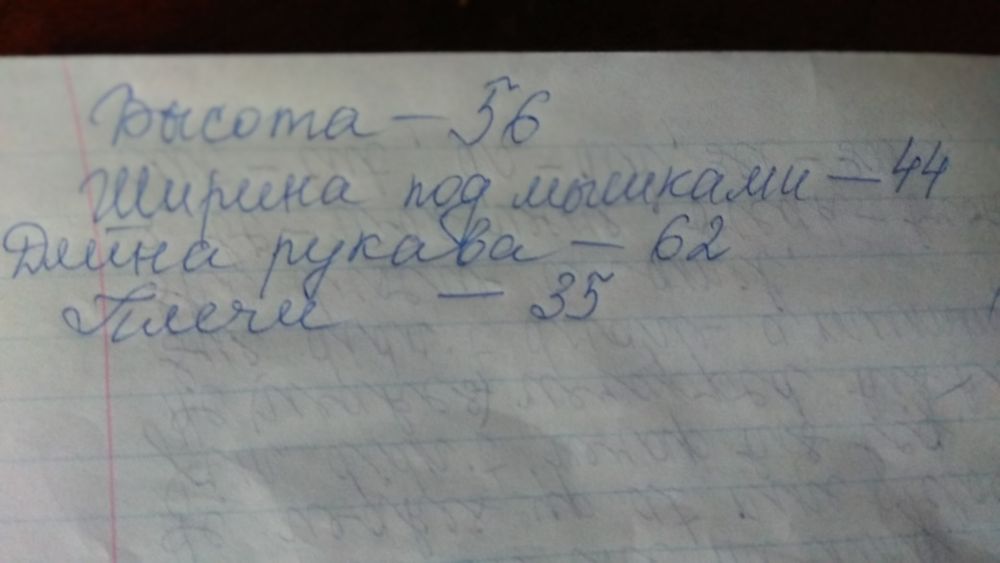 Высота — 56
Ширина под мышками — 44
Длина рукава — 62
Плечи — 35